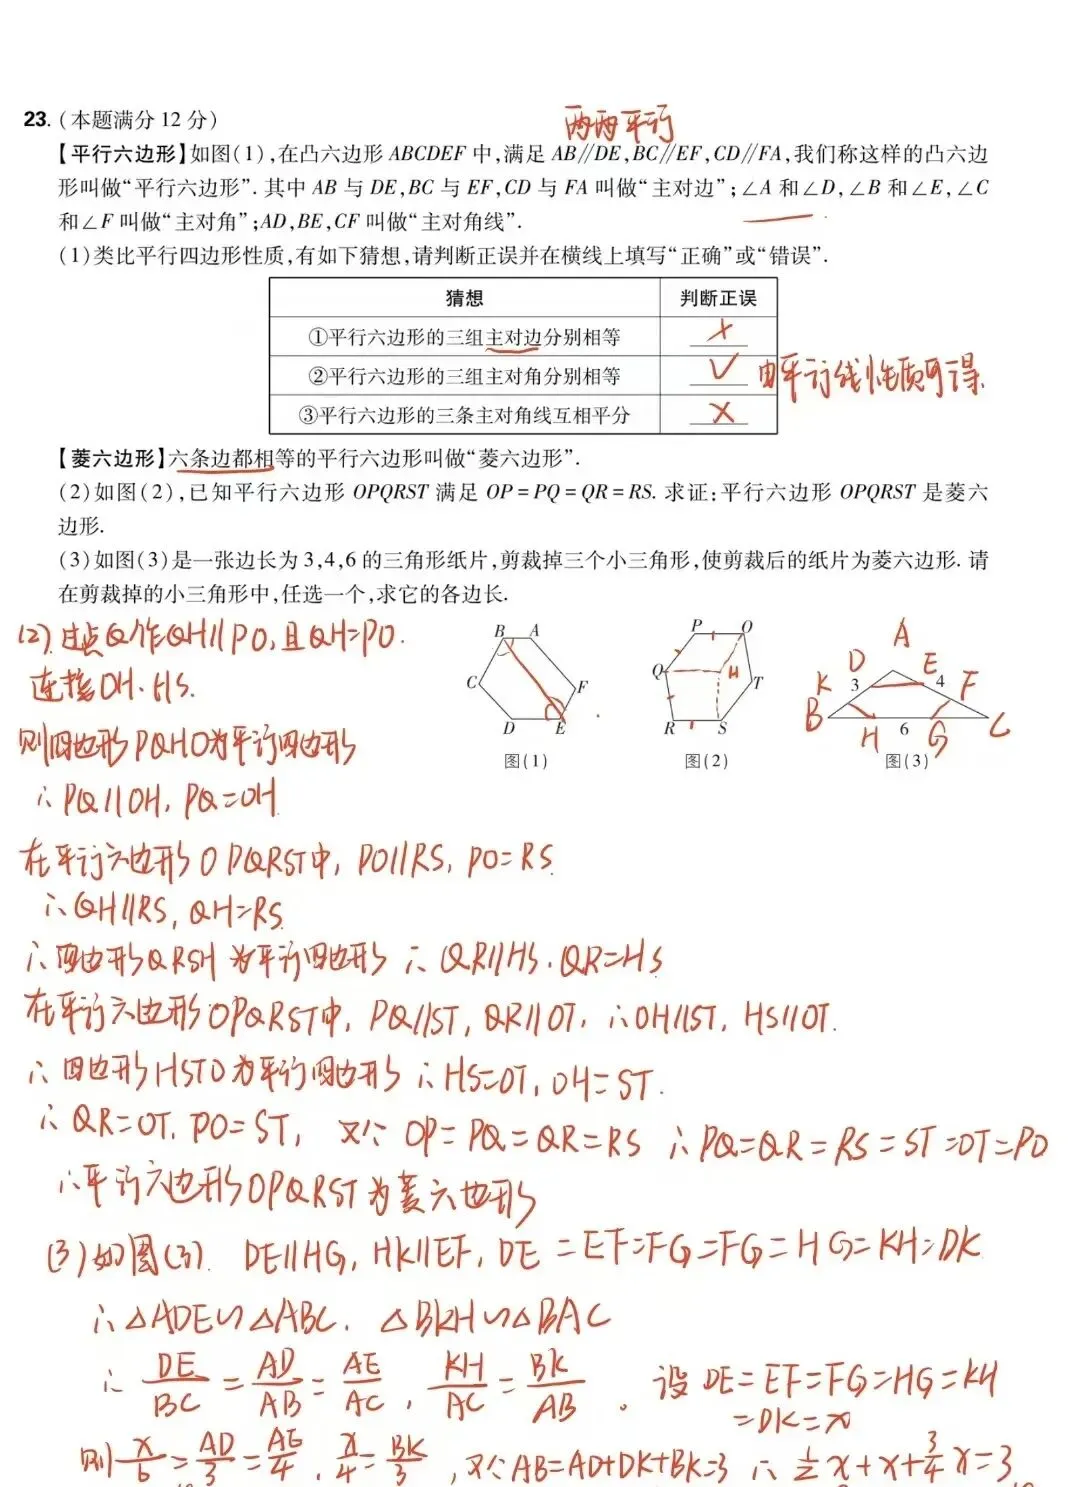 两两平行
23.(本题满分12分)
【平行六边形】如图(1),在凸六边形ABCDEF中,满足AB∥DE,BC∥EF,CD∥FA,我们称这样的凸六边
形叫做“平行六边形”.其中AB与DE,BC与EF,CD与FA叫做“主对边”;∠A和∠D,∠B和∠E,∠C
和∠F叫做“主对角”;AD,BE,CF叫做“主对角线”.
(1)类比平行四边形性质,有如下猜想,请判断正误并在横线上填写“正确”或“错误”.
猜想 判断正误
①平行六边形的三组主对边分别相等 ×
②平行六边形的三组主对角分别相等 ✓ 由平行线性质可得.
③平行六边形的三条主对角线互相平分 ×
【菱六边形】六条边都相等的平行六边形叫做“菱六边形”.
(2)如图(2),已知平行六边形OPQRST满足OP=PQ=QR=RS.求证:平行六边形OPQRST是菱六
边形.
(3)如图(3)是一张边长为3,4,6的三角形纸片,剪裁掉三个小三角形,使剪裁后的纸片为菱六边形.请
在剪裁掉的小三角形中,任选一个,求它的各边长.
B A C F D E 图(1)
P O Q H T R S 图(2)
A D E K 3 4 F B H 6 G C 图(3)
(2).过点Q作QH∥PO,且QH=PO.
连接OH、HS.
则四边形PQHO为平行四边形
∴PQ∥OH,PQ=OH.
在平行六边形OPQRST中,PO∥RS,PO=RS.
∴QH∥RS,QH=RS.
∴四边形QRSH为平行四边形 ∴QR∥HS.QR=HS
在平行六边形OPQRST中,PQ∥ST,QR∥OT,∴OH∥ST,HS∥OT.
∴四边形HSTO为平行四边形 ∴HS=OT,OH=ST.
∴QR=OT.PO=ST,又∵OP=PQ=QR=RS ∴PQ=QR=RS=ST=OT=PO
∴平行六边形OPQRST为菱六边形
(3)如图(3).DE∥HG,HK∥EF,DE=EF=FG=FG=HG=KH=DK
∴△ADE∽△ABC.△BKH∽△BAC
∴DE/BC=AD/AB=AE/AC,KH/AC=BK/AB。设DE=EF=FG=HG=KH
=DK=x
则x/6=AD/3=AE/4.x/4=BK/3,又∵AB=AD+DK+BK=3 ∴1/2x+x+3/4x=3